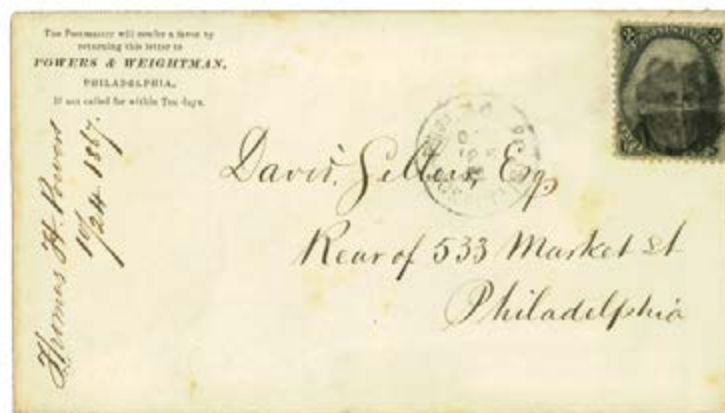 The Postmaster will confer a favor by
returning this letter to
POWERS & WEIGHTMAN,
PHILADELPHIA,
If not called for within Ten days.
Thomas H. Powers
10/24 1867.
Davis. Esq
Rear of 533 Market St
Philadelphia